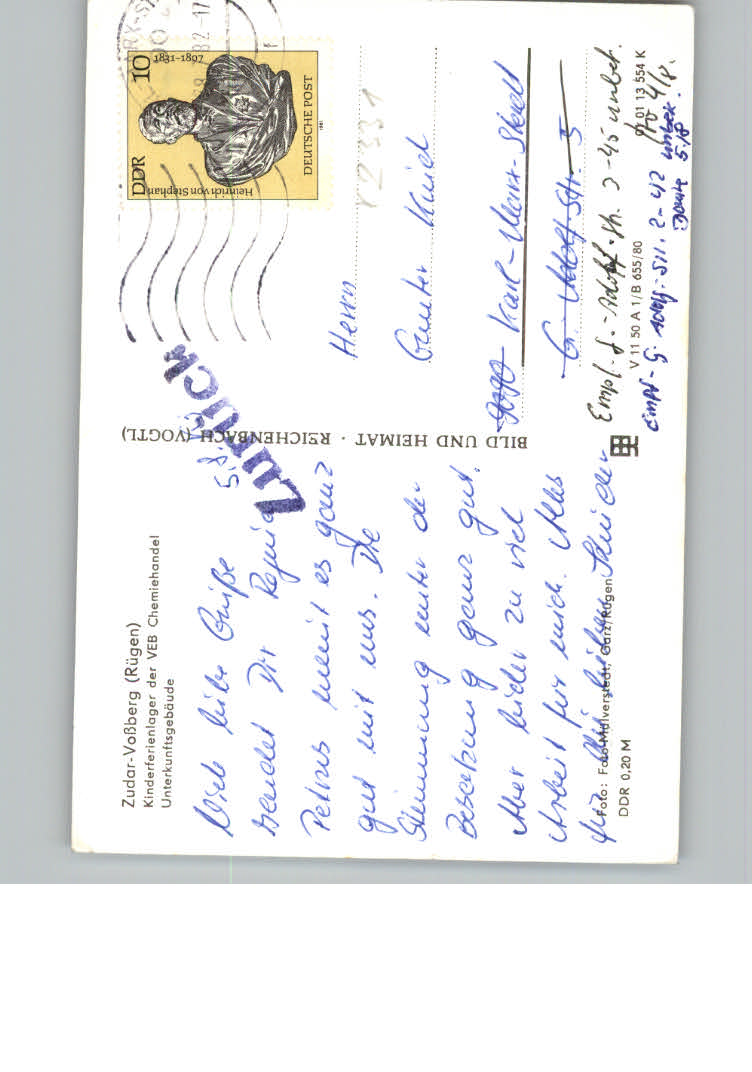 Zudar-Voßberg (Rügen)
Kinderferienlager der VEB Chemiehandel
Unterkunftsgebäude
5.8.
Viele liebe Grüße
sendet Dir
Petrus meint es ganz
gut mit uns. Die
Stimmung unter der
Besatzung ganz gut.
Aber leider zu viel
Arbeit für mich. Alles
lieben
Foto: Foto-Mulverstedt, Garz/Rügen
DDR 0,20 M
BILD UND HEIMAT · REICHENBACH (VOGTL)
Zurück
10
1831-1897
DDR
Heinrich von Stephan
DEUTSCHE POST
1981
82-17
12331
Herrn
Günter
9090 Karl-Marx-Stadt
G.-Adolf-Str. 5
Empf. G.-Adolf-Str. 2-45 unbek.
V 11 50 A 1/B 655/80
01 13 554 K
4/8.
Empf- G. Adolf-Str. 2-42 unbek.
5.8